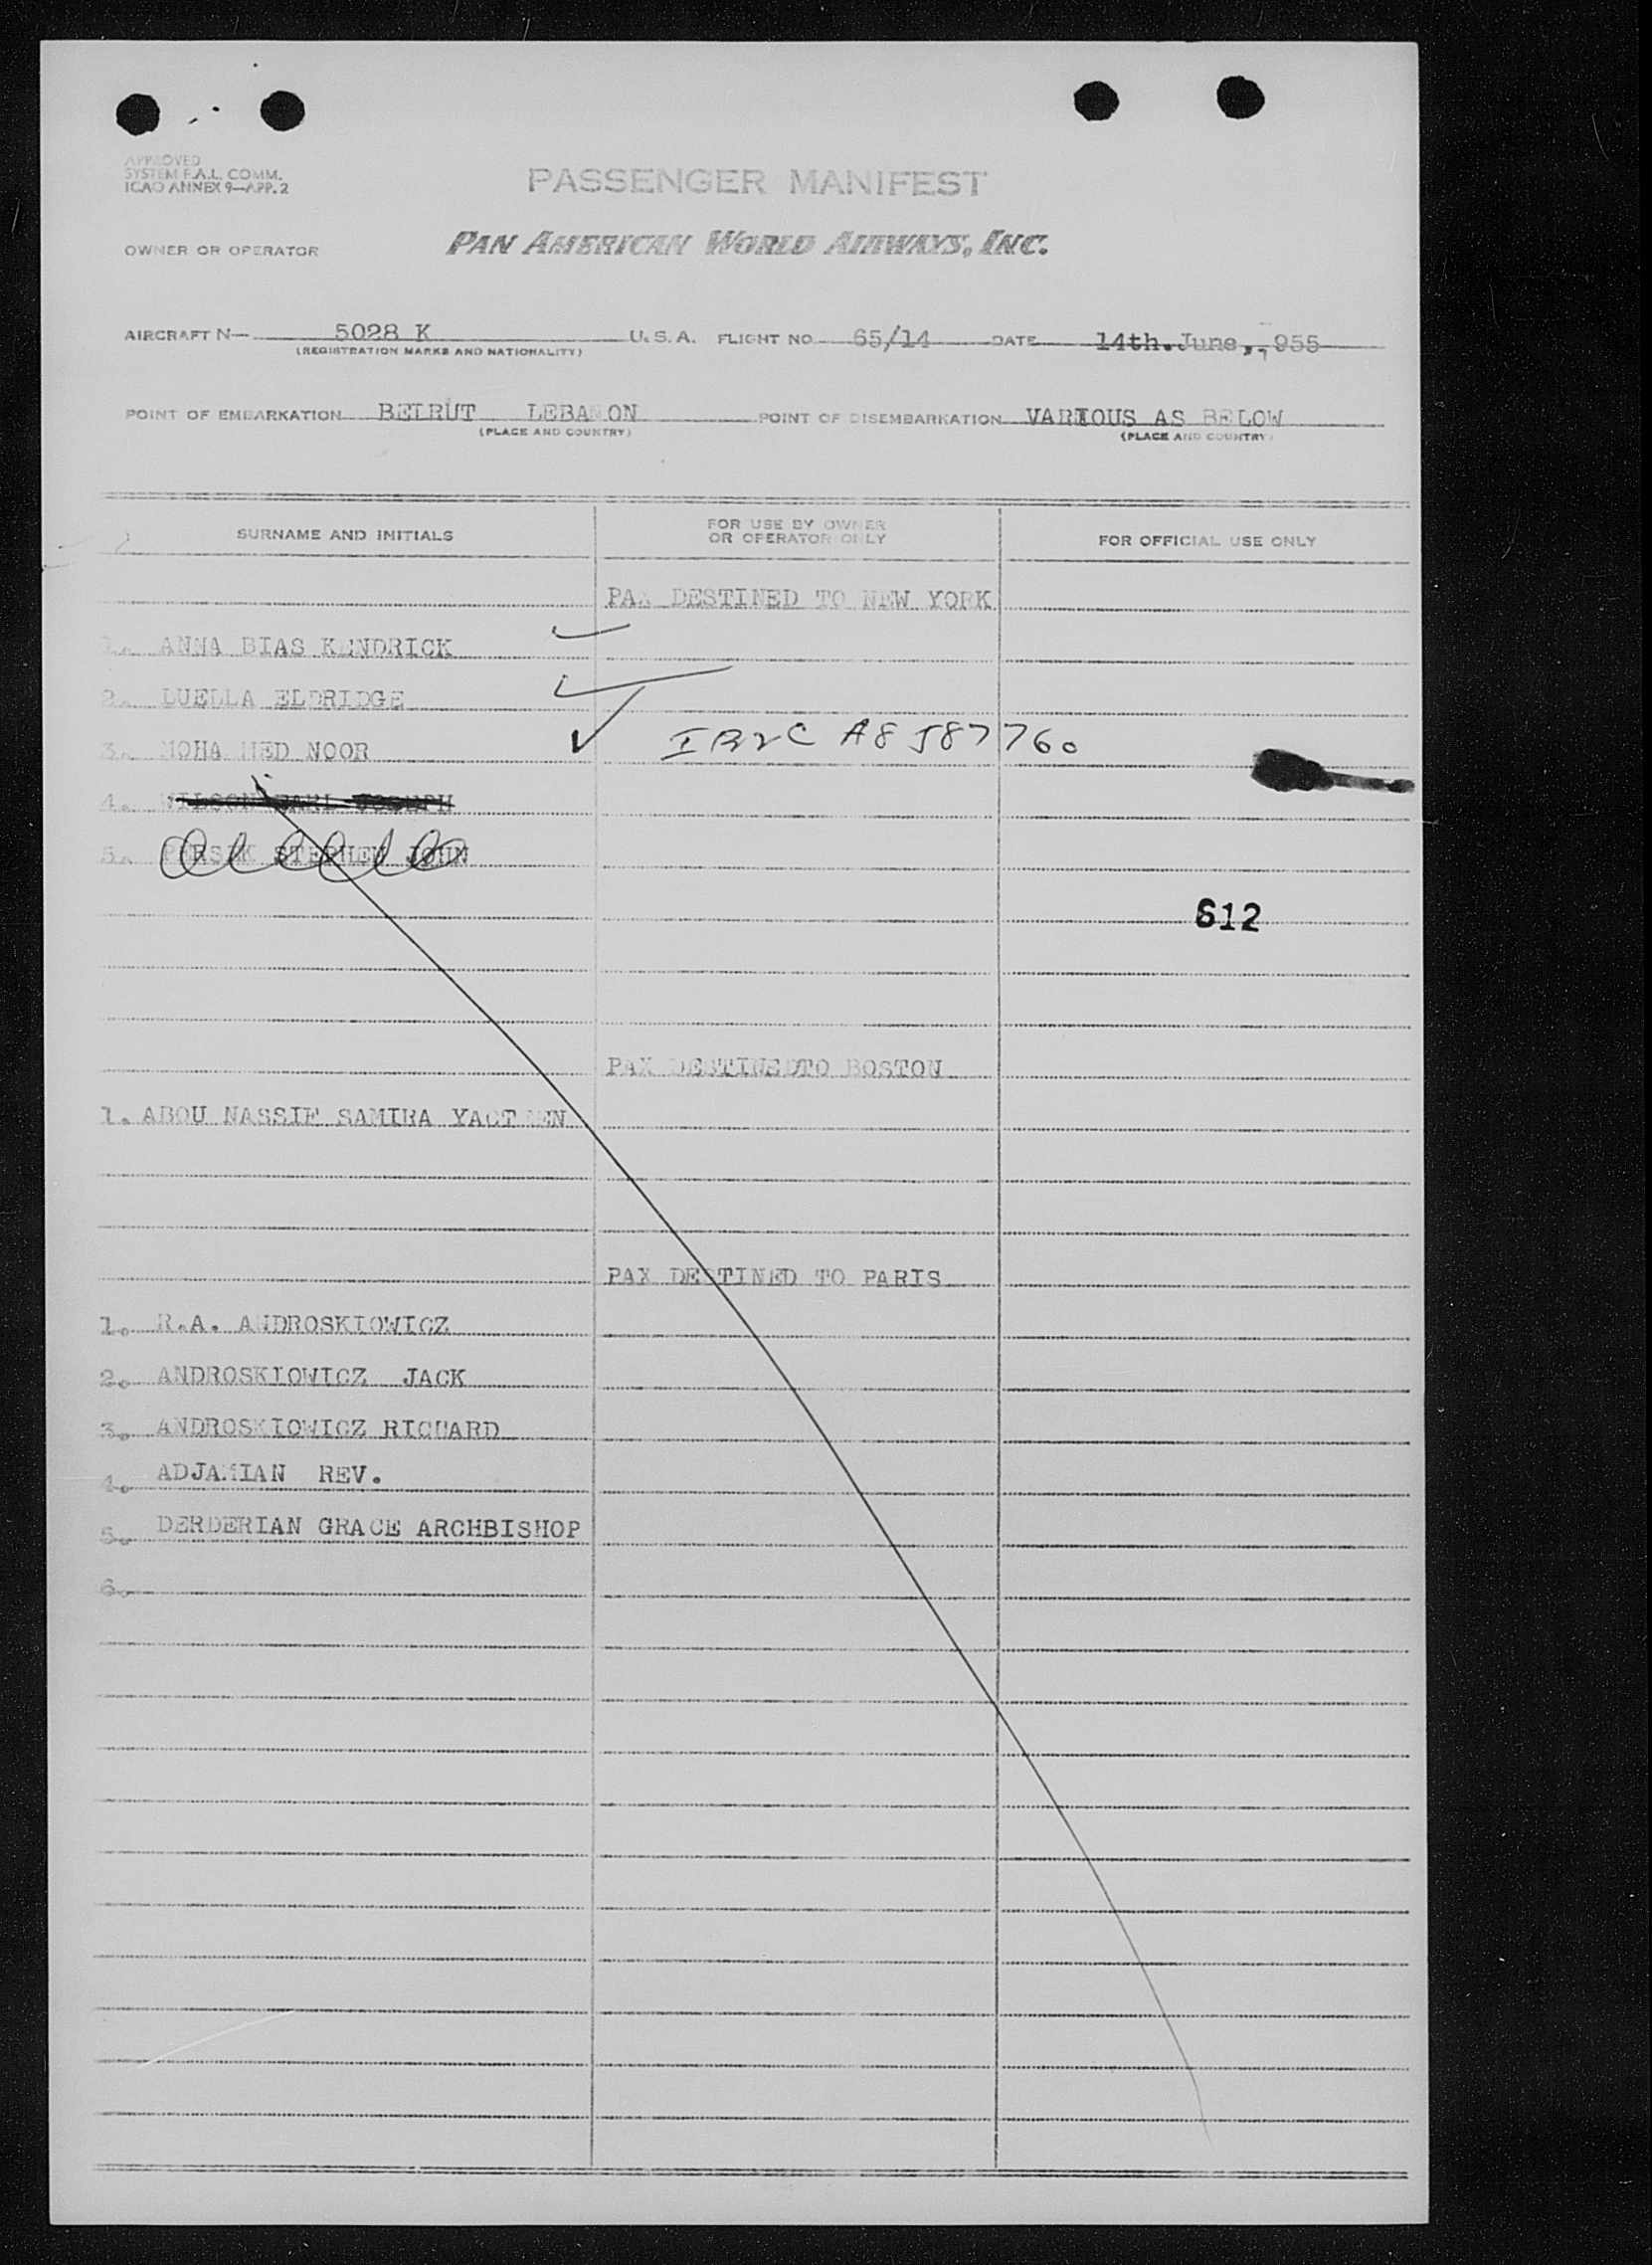 APPROVED
SYSTEM F.A.L. COMM.
ICAO ANNEX 9—APP. 2
PASSENGER MANIFEST
OWNER OR OPERATOR PAN AMERICAN WORLD AIRWAYS, INC.
AIRCRAFT N— 5028 K U. S. A. FLIGHT NO 65/14 DATE 14th.June,,955
(REGISTRATION MARKS AND NATIONALITY)
POINT OF EMBARKATION BEIRUT LEBANON POINT OF DISEMBARKATION VARIOUS AS BELOW
(PLACE AND COUNTRY) (PLACE AND COUNTRY)
SURNAME AND INITIALS FOR USE BY OWNER OR OPERATOR ONLY FOR OFFICIAL USE ONLY
PAX DESTINED TO NEW YORK
1. ANNA BIAS KENDRICK
2. LUELLA ELDRIDGE
3. MOHAMMED NOOR A8 587760
4. WILSON JOSEPH
5. STEPHEN JOHN
612
PAX DESTINEDTO BOSTON
1. ABOU NASSIF SAMIRA
PAX DESTINED TO PARIS
1. R.A. ANDROSKIOWICZ
2. ANDROSKIOWICZ JACK
3. ANDROSKIOWICZ RICHARD
4. ADJAMIAN REV.
5. DERDERIAN GRACE ARCHBISHOP
6.